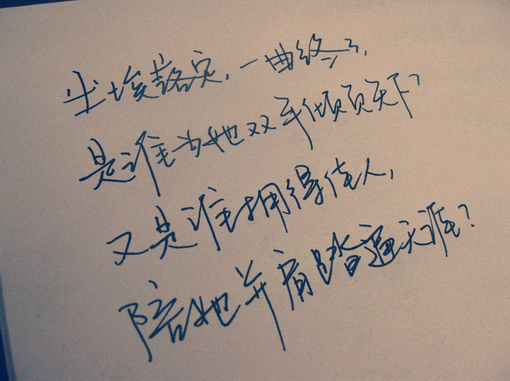 尘埃落定,一曲终了,
是谁为她双手倾负天下?
又是谁拥得佳人,
陪她并肩踏遍天涯?